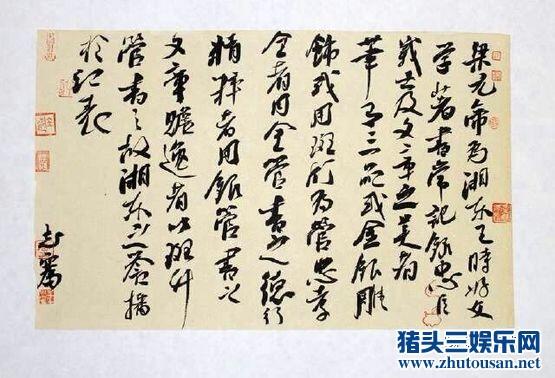 梁元帝為湘東王時好文
學著書常記錄忠臣
義士及文章之美者
筆有三品或金銀雕
飾或用斑竹為管忠孝
全者用金管書之德行
精粹者用銀管書之
文章贍逸者以斑竹
管書之故湘東之譽播
於江表
猪头三娱乐网
www.zhutousan.net